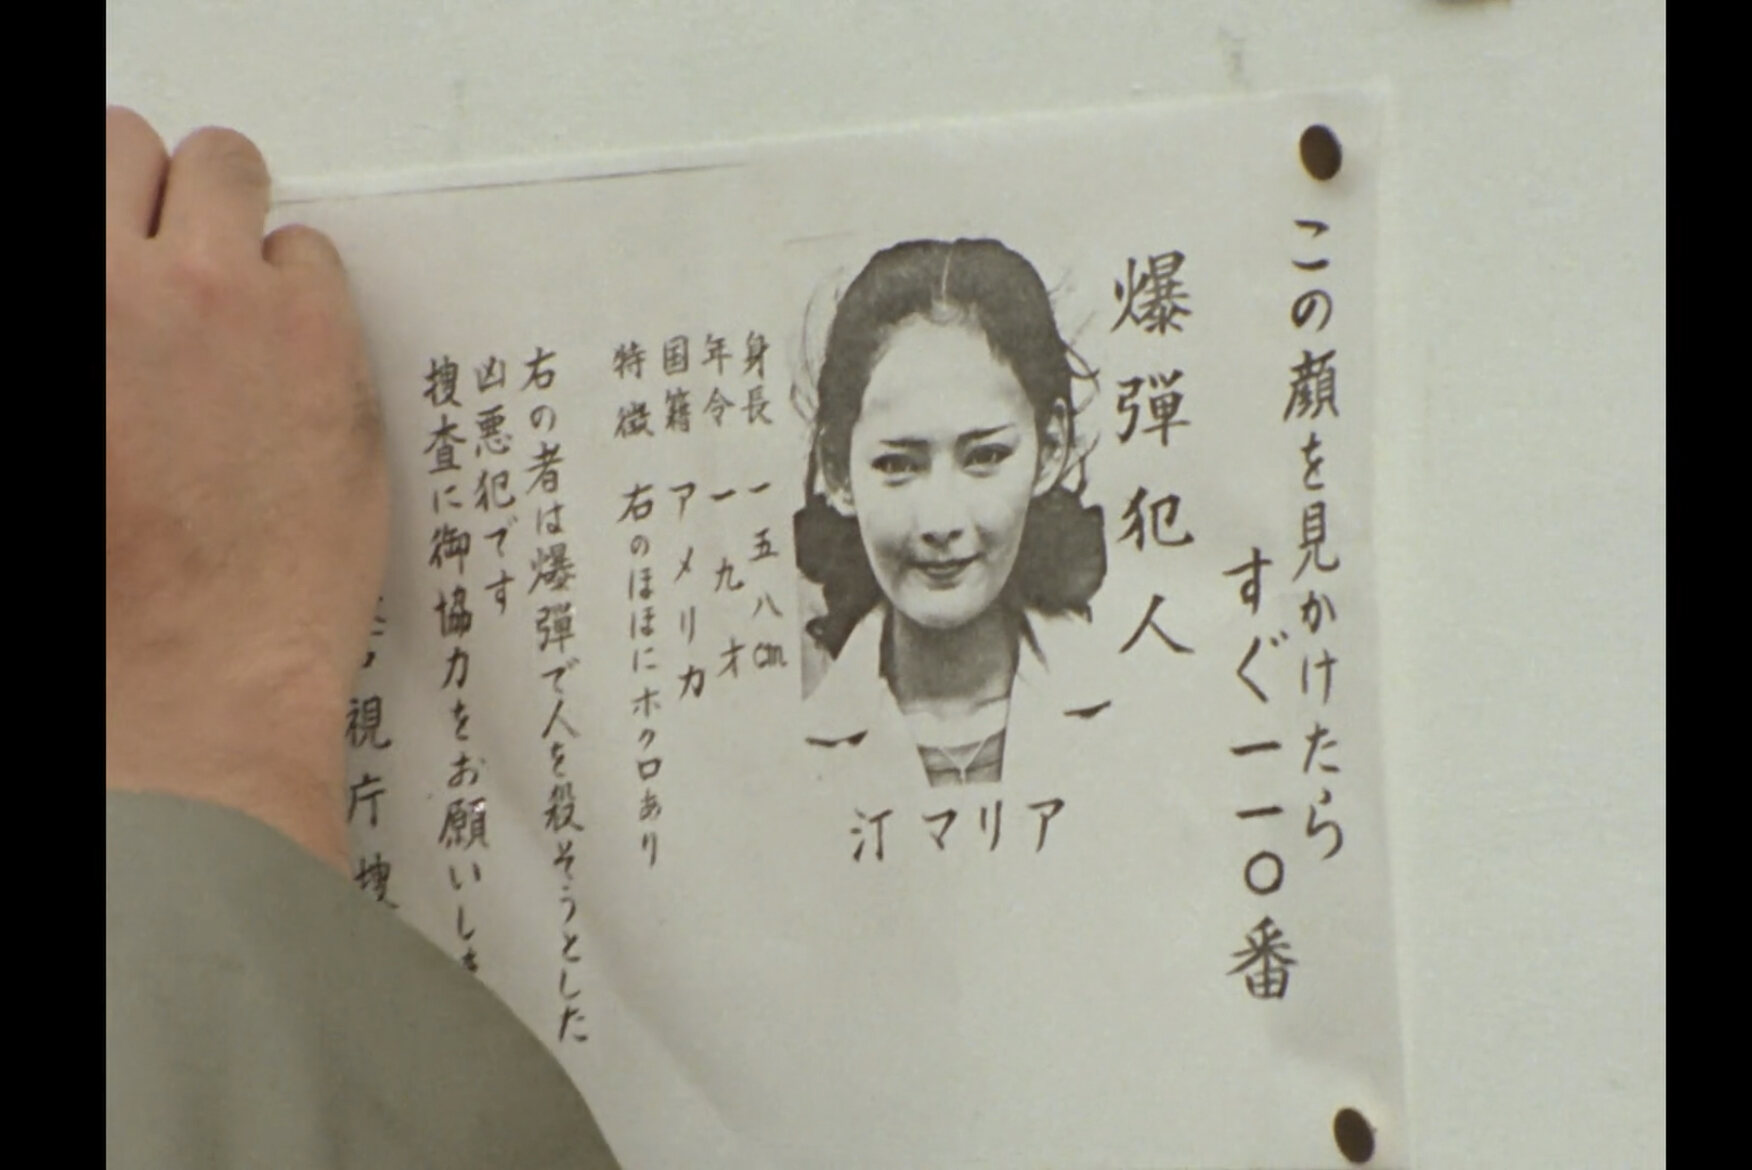 この顔を見かけたら
すぐ一一〇番
爆弾犯人
汀マリア
身長 一五八cm
年令 一九才
国籍 アメリカ
特徴 右のほほにホクロあり
右の者は爆弾で人を殺そうとした
凶悪犯です
捜査に御協力をお願いしま
視庁捜